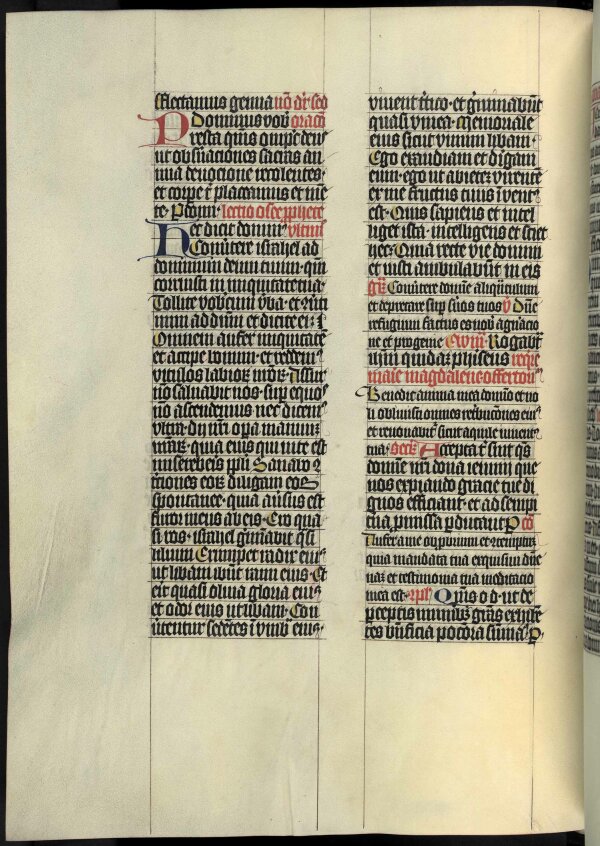 flectamus genua nō dr̄ sed
Domin̄us vob oracō
Presta qm̄s om̄pc̄ deus
ut obsuaciones sacras an
nua deuocione recolentes
et corpe t placeamus et men
te P dom̄ lectio osee pphete
Hec dicit domin̄
Conūtere israhel ad
dominum deum tuum qm̄
corruisti in iniquitate tua
Tollite vobcum vba et
mini ad dūm et dicite ei
Omnem aufer iniquitatē
et accipe bonum et reddem
vitulos labior nr̄or Assur
nō saluabit nos sup equos
nō ascendemus nec dicem
vltra dij nr̄i opa manuū
nr̄ar quia eius qui in te est
misereberis pplli Sanabo
tr̄iciones eor diligam eos
spontanee quia auersus est
furor meus ab eis Ero qua
si ros israhel gm̄abit q̄si
lilium Erumpet radix ei
ut libani ibūt rami eius Et
erit quasi oliua gloria eius
et odor eius ut libani Con
uertentur sedētes ī vmbr eius
viuent tritico et gm̄inabūt
quasi vinea memoriale
eius sicut vinum libani
Ego exaudiam et dirigam
eum ego ut abietē virentē
ex me fructus tuus īuent
est Quis sapiens et intel
liget ista intelligens et sciet
hec Quia recte vie domini
et iusti ambulabūt in eis
gr̄ Conūtere domine aliqntulum
et deprecare sup suos tuos v Dn̄e
refugium factus es nob a gnacio
ne et progenie Ewm̄ Rogabt
ihm quidā phiseus require
marie magdalene offertori
Benedic anima mea domīo et no
li obliuisci omnes retbuciones ei
et renouabit sicut aquile iuuent
tua Secr Accepta t sint qs
domine nr̄i dona ieiunij que
nos expiando gracie tue di
gnos efficiant et ad sempi
tna pmissa pducant P Cō
Aufer a me opprobrium et contemptū
quia mandata tua exquisiui dn̄e
nam et testimonia tua meditacio
mea est Qm̄s o d ut de
pceptis munib gr̄as exhiben
tes bn̄ficia pociora sum̄a P